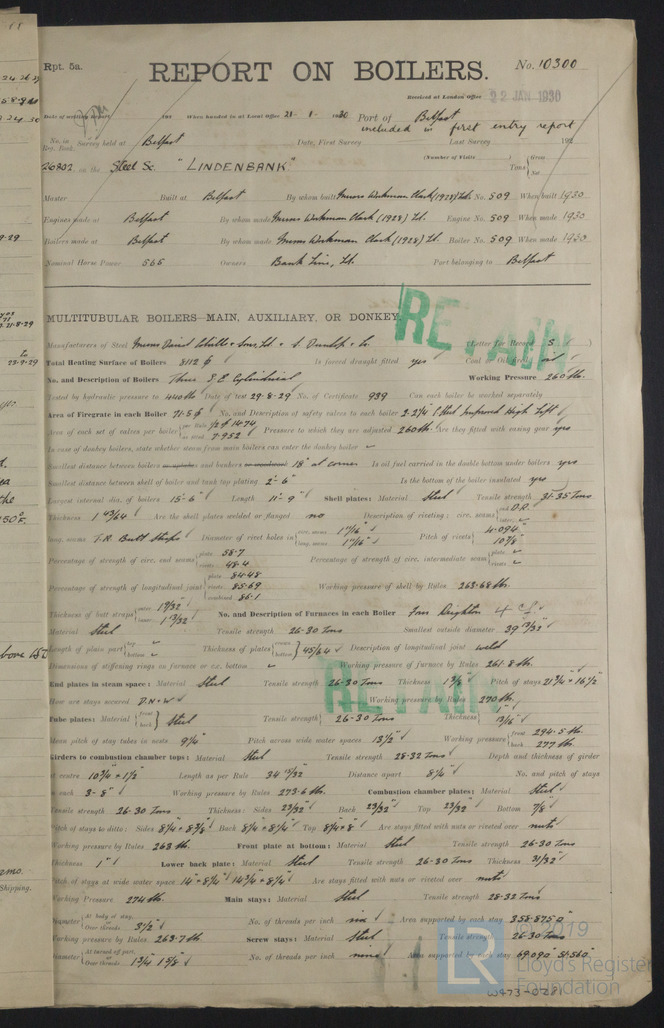 Rpt. 5a.
No. 10300
REPORT ON BOILERS.
Received at London Office 22 JAN 1930
Date of writing Report 192 When handed in at Local Office 21-1-1930 Port of Belfast
included in first entry report
No. in Reg. Book. Survey held at Belfast Date, First Survey Last Survey 192
(Number of Visits )
26802 on the Steel Sc. "LINDENBANK" Tons { Gross Net
Master Built at Belfast By whom built Messrs Workman Clark (1928) Ld. Yard No. 509 When built 1930
Engines made at Belfast By whom made Messrs Workman Clark (1928) Ld. Engine No. 509 When made 1930
Boilers made at Belfast By whom made Messrs Workman Clark (1928) Ld. Boiler No. 509 When made 1930
Nominal Horse Power 565 Owners Bank Line, Ld. Port belonging to Belfast
RETAIN
MULTITUBULAR BOILERS—MAIN, AUXILIARY, OR DONKEY.
Manufacturers of Steel Messrs David Colville & Sons Ld. & A. Dunlop & Co (Letter for Record S )
Total Heating Surface of Boilers 8112 Is forced draught fitted yes Coal or Oil fired oil
No. and Description of Boilers Three S.E. Cylindrical Working Pressure 260 lbs.
Tested by hydraulic pressure to 440 lbs Date of test 29-8-29 No. of Certificate 939 Can each boiler be worked separately
Area of Firegrate in each Boiler 71.5 No. and Description of safety valves to each boiler 2-2¼ Improved High Lift
Area of each set of valves per boiler { per Rule 14.74 as fitted 7.952 Pressure to which they are adjusted 260 lb. Are they fitted with easing gear yes
In case of donkey boilers, state whether steam from main boilers can enter the donkey boiler
Smallest distance between boilers or uptakes and bunkers or woodwork 18" at corner Is oil fuel carried in the double bottom under boilers yes
Smallest distance between shell of boiler and tank top plating 2'-6" Is the bottom of the boiler insulated yes
Largest internal dia. of boilers 15'-6" Length 11'-9" Shell plates: Material Steel Tensile strength 31-35 Tons
Thickness 1 43/64 Are the shell plates welded or flanged no Description of riveting: circ. seams { end D.R. inter.
long. seams T.R. Butt Straps Diameter of rivet holes in { circ. seams 1 7/16" long. seams 1 11/16" Pitch of rivets { 4.094" 10 7/8"
Percentage of strength of circ. end seams { plate 58.7 rivets 48.4 Percentage of strength of circ. intermediate seam { plate rivets
Percentage of strength of longitudinal joint { plate 84.48 rivets 85.69 combined 86.1 Working pressure of shell by Rules 263.68 lb.
Thickness of butt straps { outer 1 9/32" inner 1 13/32" No. and Description of Furnaces in each Boiler Four Deighton 4 c.f.
Material Steel Tensile strength 26-30 Tons Smallest outside diameter 39 13/32"
Length of plain part { top bottom Thickness of plates { crown bottom } 45/64 Description of longitudinal joint weld
Dimensions of stiffening rings on furnace or c.c. bottom Working pressure of furnace by Rules 261.8 lb.
End plates in steam space: Material Steel Tensile strength 26-30 Tons Thickness 1 3/8" Pitch of stays 21¾" + 16½"
RETAIN
How are stays secured D.N + W Working pressure by Rules 270 lb.
Tube plates: Material { front back } Steel Tensile strength { 26-30 Tons Thickness { 1" 13/16"
Mean pitch of stay tubes in nests 9¼" Pitch across wide water spaces 13½" Working pressure { front 294.5 lb. back 277 lb.
Girders to combustion chamber tops: Material Steel Tensile strength 28-32 Tons Depth and thickness of girder
at centre 10¾" + 1½ Length as per Rule 34 15/32" Distance apart 8¼" No. and pitch of stays
in each 3-8" Working pressure by Rules 273.6 lb. Combustion chamber plates: Material Steel
Tensile strength 26-30 Tons Thickness: Sides 23/32" Back 23/32" Top 23/32" Bottom 7/8"
Pitch of stays to ditto: Sides 8¼" + 8⅜" Back 8¼" + 8¼" Top 8¼" + 8" Are stays fitted with nuts or riveted over nuts
Working pressure by Rules 263 lb. Front plate at bottom: Material Steel Tensile strength 26-30 Tons
Thickness 1" Lower back plate: Material Steel Tensile strength 26-30 Tons Thickness 31/32"
Pitch of stays at wide water space 14" + 8¼" 14¾" + 8¼" Are stays fitted with nuts or riveted over nuts
Working Pressure 274 lb. Main stays: Material Steel Tensile strength 28-32 Tons
Diameter { At body of stay, Over threads 3½" No. of threads per inch six Area supported by each stay 358.875
Working pressure by Rules 263.7 lb. Screw stays: Material Steel Tensile strength 26-30 Tons
Diameter { At turned off part, Over threads 1¾" 1⅝" No. of threads per inch nine Area supported by each stay 69.090
© 2019
LR Lloyd's Register Foundation
W473-0281